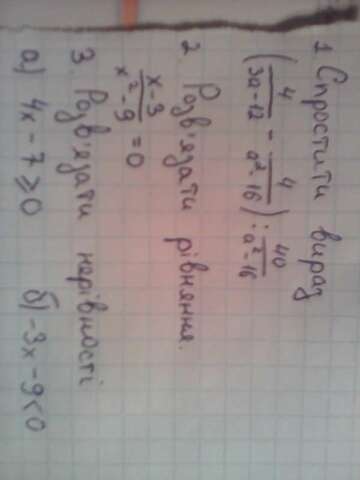 1 Спростити вираз
(4/(3a-12) - 4/(a²-16)) : 40/(a²-16)
2. Розв'язати рівняння.
(x-3)/(x²-9) = 0
3. Розв'язати нерівності
а) 4x - 7 ≥ 0 б) -3x - 9 < 0